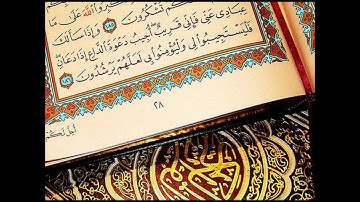 ـبِّرُوا۟ ٱللَّهَ عَلَىٰ مَا
ـكُمْ تَشْكُرُونَ ١٨٥ وَإِذَا سَأَلَكَ
عِبَادِى عَنِّى فَإِنِّى قَرِيبٌ أُجِيبُ دَعْوَةَ ٱلدَّاعِ إِذَا دَعَانِ
فَلْيَسْتَجِيبُوا۟ لِى وَلْيُؤْمِنُوا۟ بِى لَعَلَّهُمْ يَرْشُدُونَ ١٨٦
٢٨
أُحِلَّ لَكُمْ